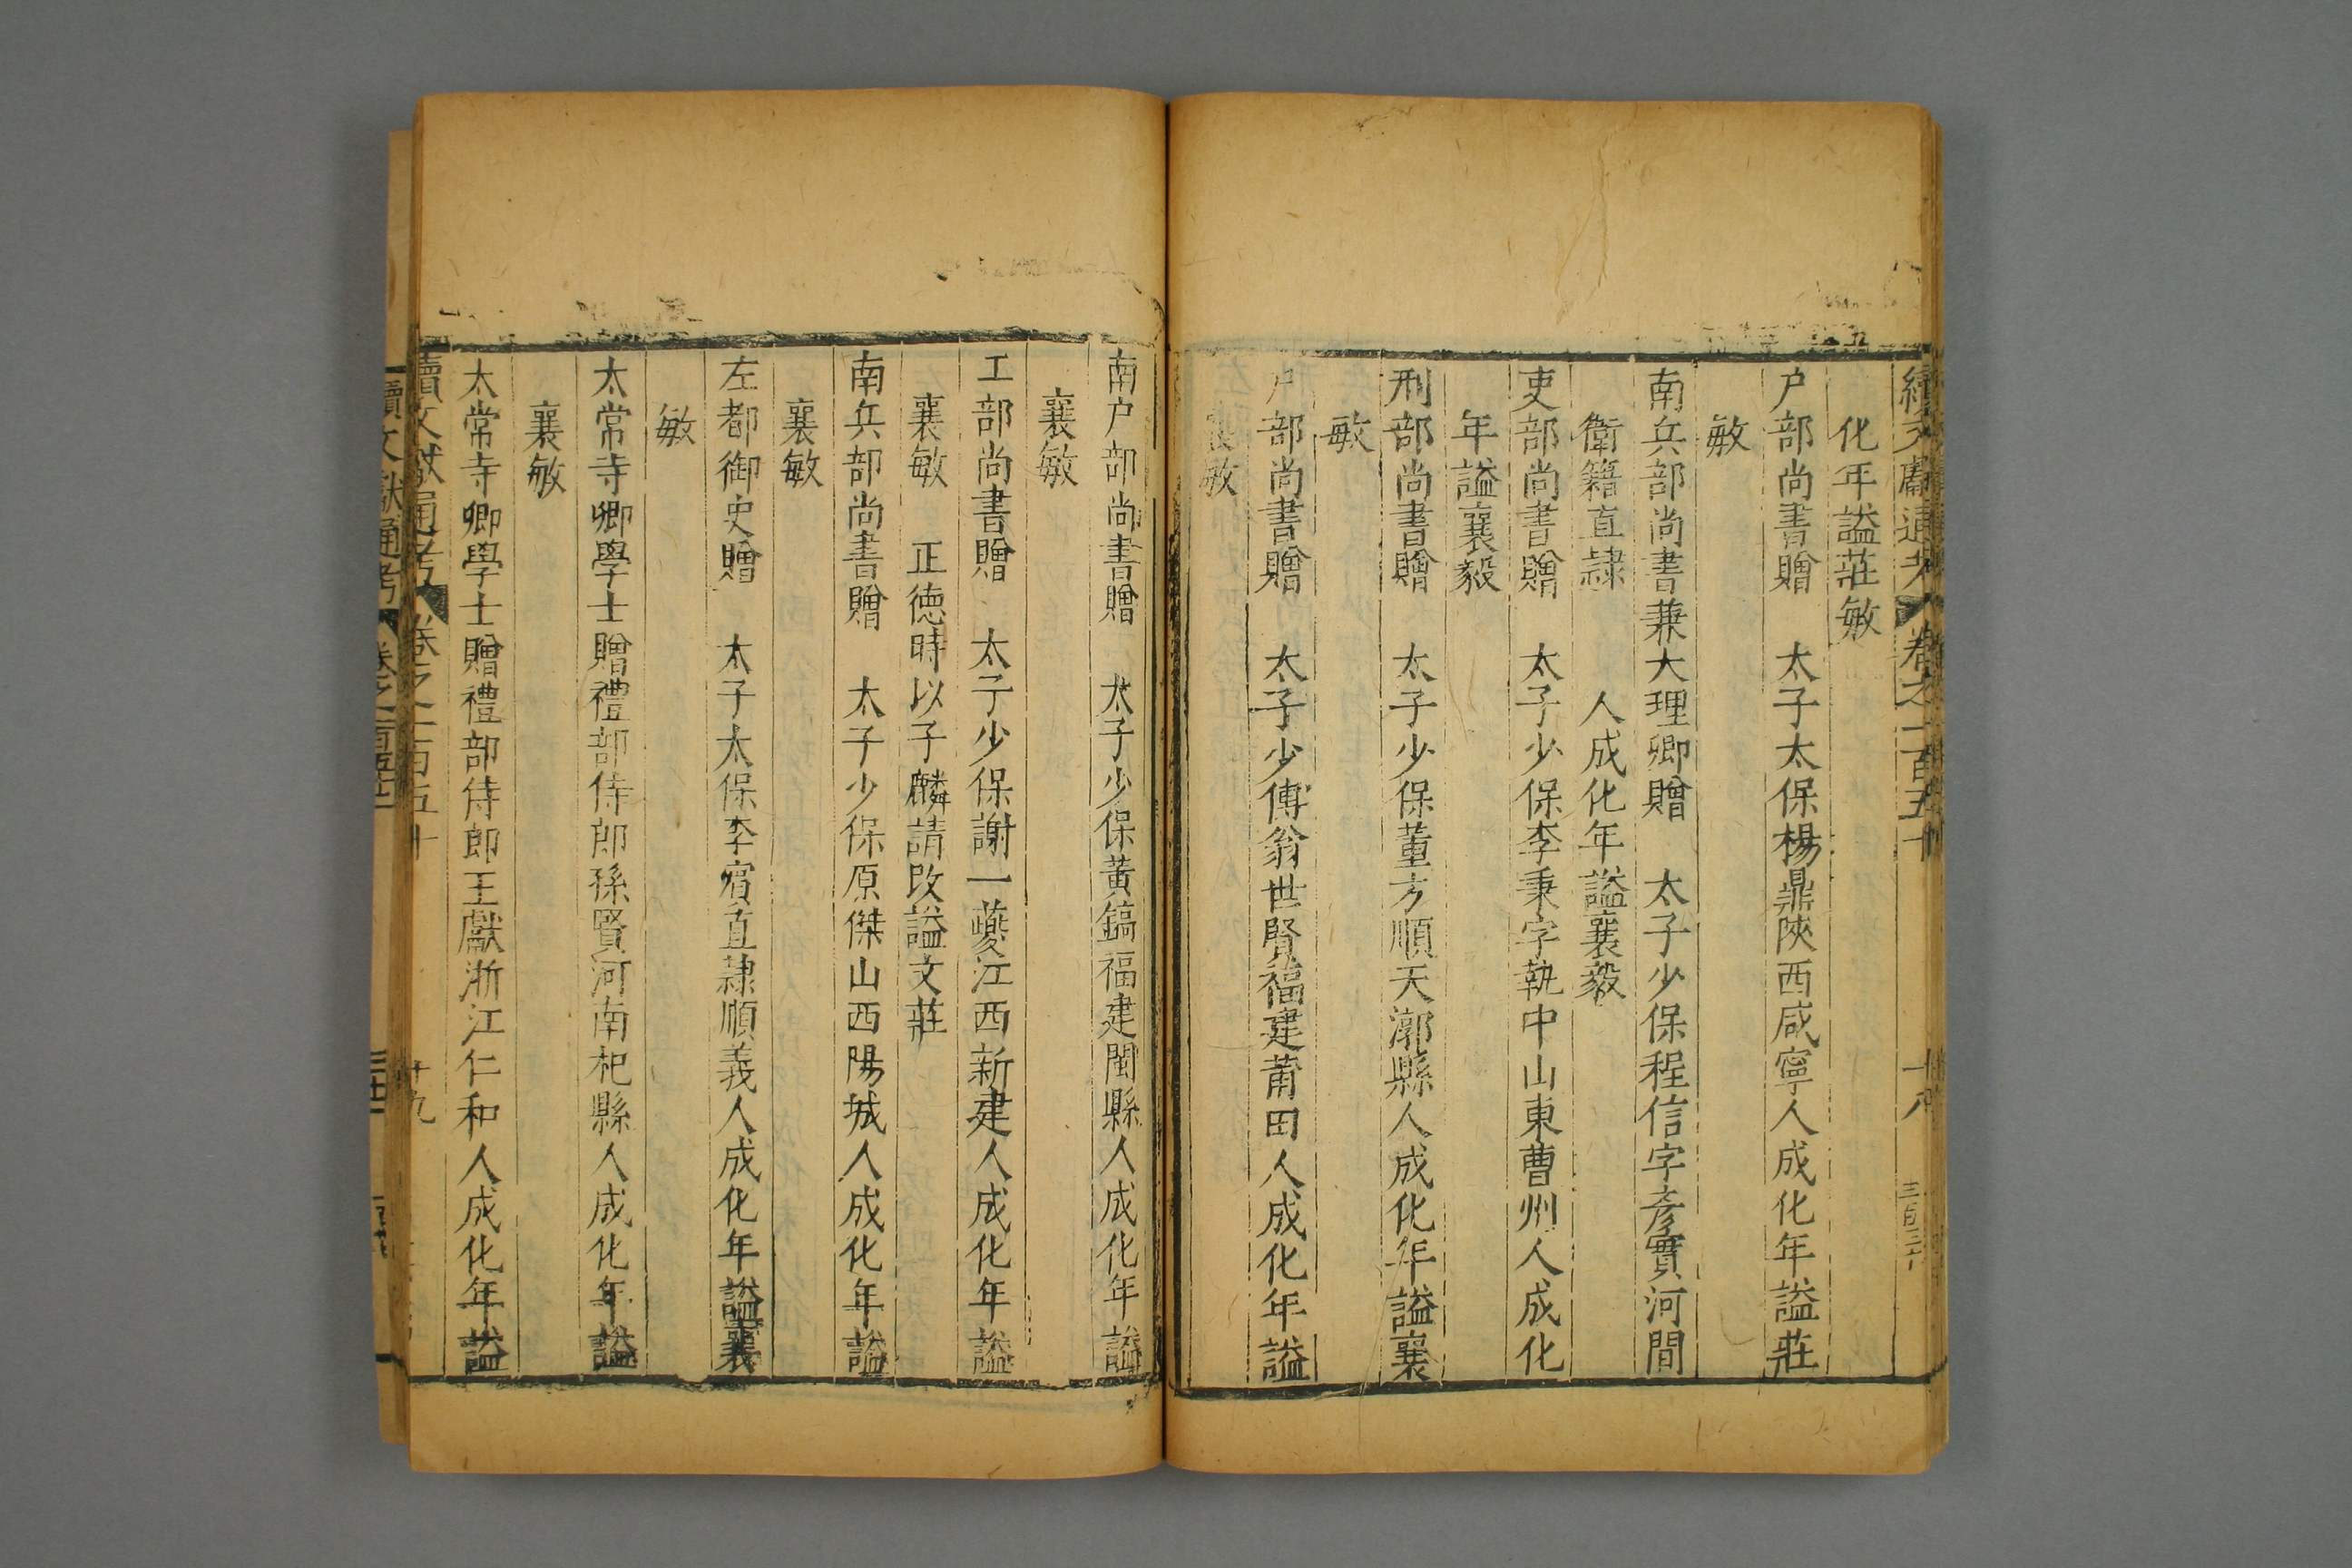 續文獻通考 卷之一百五十 十八
化年謚莊敏
户部尚書贈 太子太保楊鼎陝西咸寧人成化年謚莊
敏
南兵部尚書兼大理卿贈 太子少保程信字彥實河間
衛籍直隷 人成化年謚襄毅
吏部尚書贈 太子少保李秉字執中山東曹州人成化
年謚襄毅
刑部尚書贈 太子少保董方順天漷縣人成化年謚襄
敏
户部尚書贈 太子少傅翁世賢福建莆田人成化年謚
襄敏
南户部尚書贈 太子少保黃鎬福建閩縣人成化年謚
襄敏
工部尚書贈 太子少保謝一夔江西新建人成化年謚
襄敏 正德時以子麟請改謚文莊
南兵部尚書贈 太子少保原傑山西陽城人成化年謚
襄敏
左都御史贈 太子太保李賔直隷順義人成化年謚襄
敏
太常寺卿學士贈禮部侍郎孫賢河南杞縣人成化年謚
襄敏
太常寺卿學士贈禮部侍郎王獻浙江仁和人成化年謚
續文獻通考 卷之一百五十 十九
續文獻通考 卷之一百五十